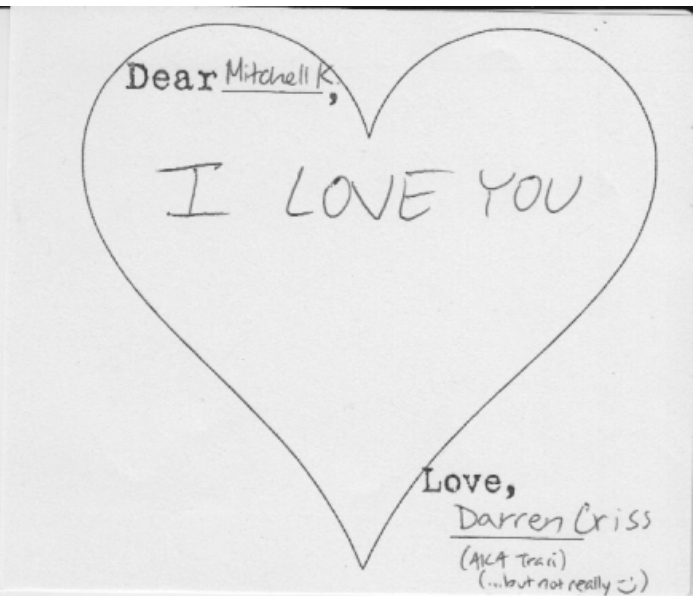 Dear Mitchell K.,
I LOVE YOU
Love,
Darren Criss
(AKA Traci)
(...but not really :)